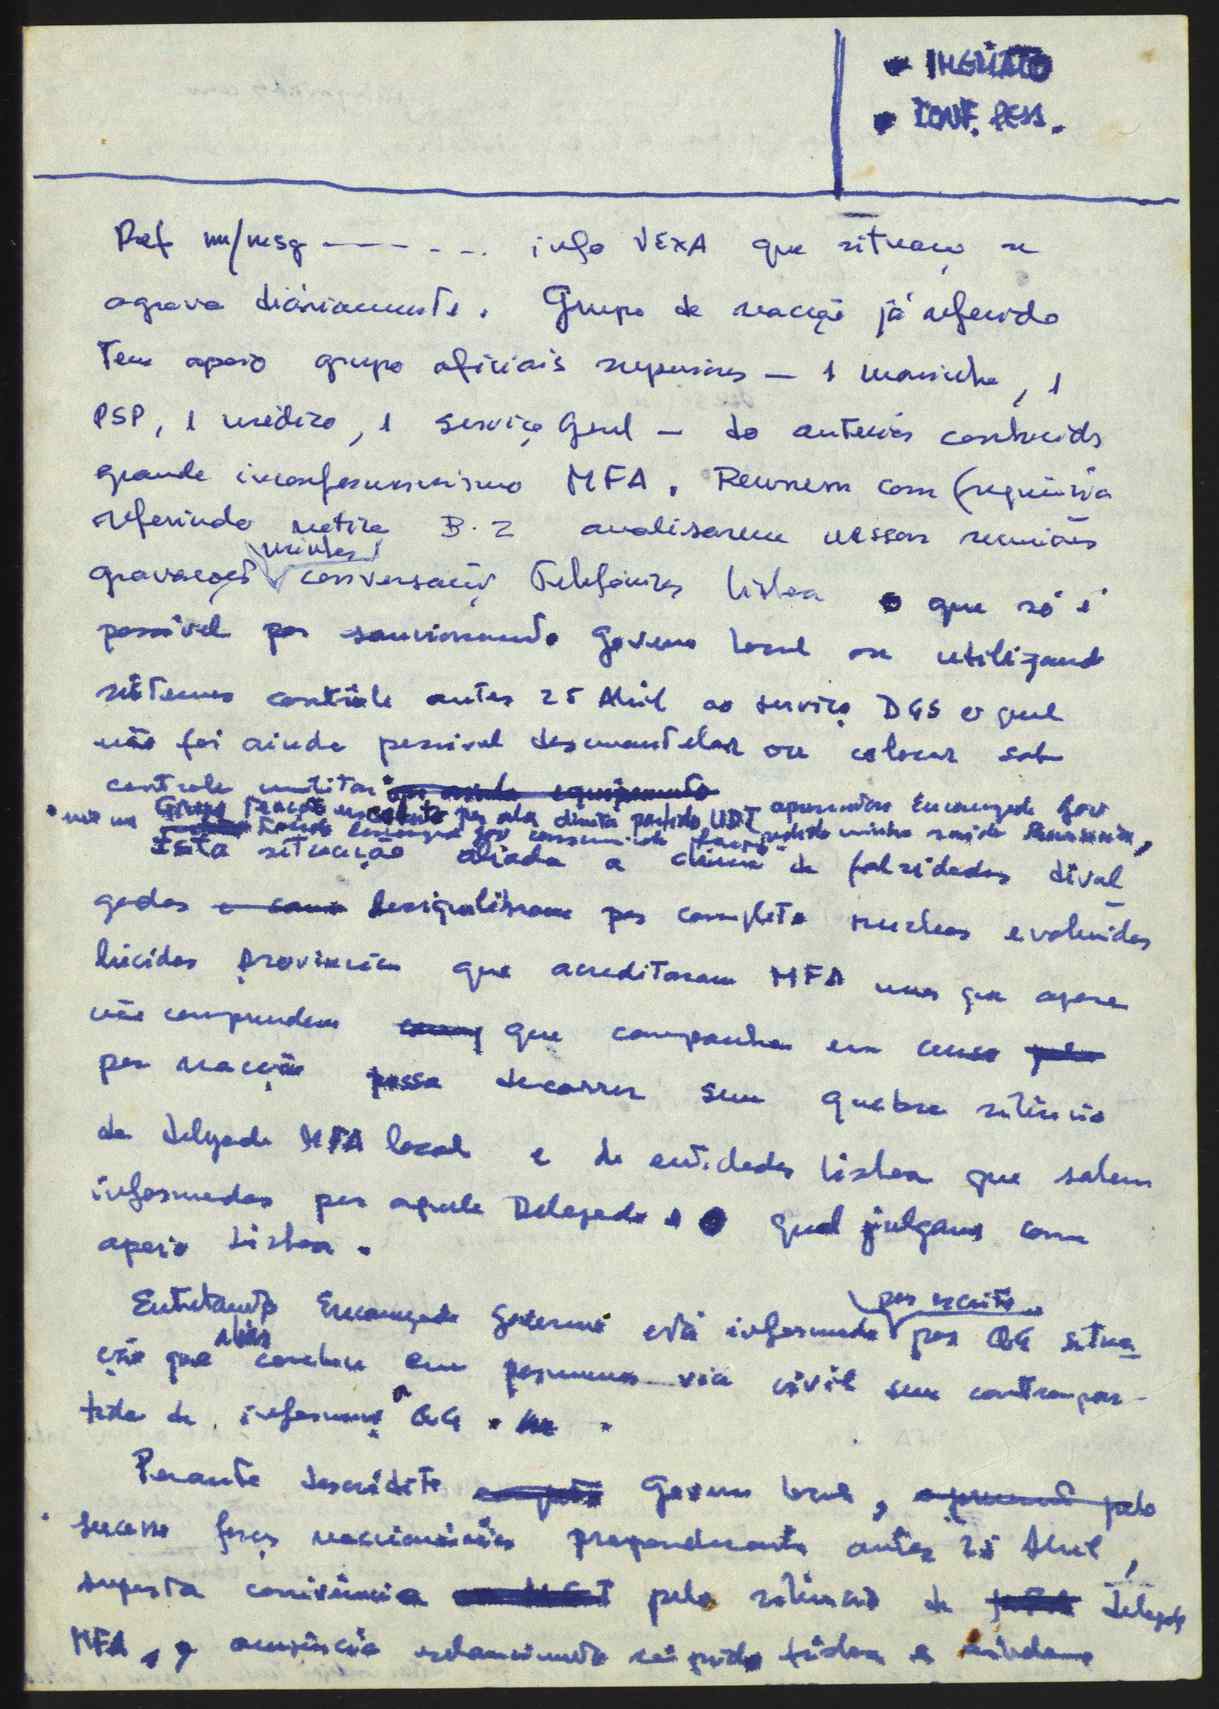 • IMEDIATO
• CONF. PESS.
Ref m/msg ------ info VEXA que situação se
agrava diàriamente. Grupo de reacção já referido
tem apoio grupo oficiais superiores — 1 marinha, 1
PSP, 1 médico, 1 serviço geral — do anterior conhecido
grande inconformismo MFA. Reunem com frequência
referindo notícia B.2 analisarem nessas reuniões
gravações minhas conversações telefónicas Lisboa o que só é
possível por sancionamento Governo local ou utilizando
sistemas contrôle antes 25 Abril ao serviço DGS o qual
não foi ainda possivel desmantelar ou colocar sob
controle militar
Grupo reacção por ala direita partido UDT Encarregado Gov
pedido minha saída
Esta situação aliada a clima de falsidades divul
gadas e como desiquilibram por completo nucleos evoluidos
lúcidos província que acreditaram MFA mas que agora
não compreendem que campanha em curso pela
por reacção possa decorrer sem quebra silêncio
de delegado MFA local e de entidades Lisboa que sabem
informadas por aquele Delegado e o qual julgam com
apoio Lisboa.
Entretanto Encarregado Governo está informado por escrito por QG situa
ção que aliás conduz em via civil sem contrapar-
tida de informar QG.
Perante descrédito completo Governo local, pelo
sucesso forças reaccionárias preponderante antes 25 Abril,
suposta conivência pelo silêncio de Delegado
MFA, e ausência esclarecimento rápido Lisboa e